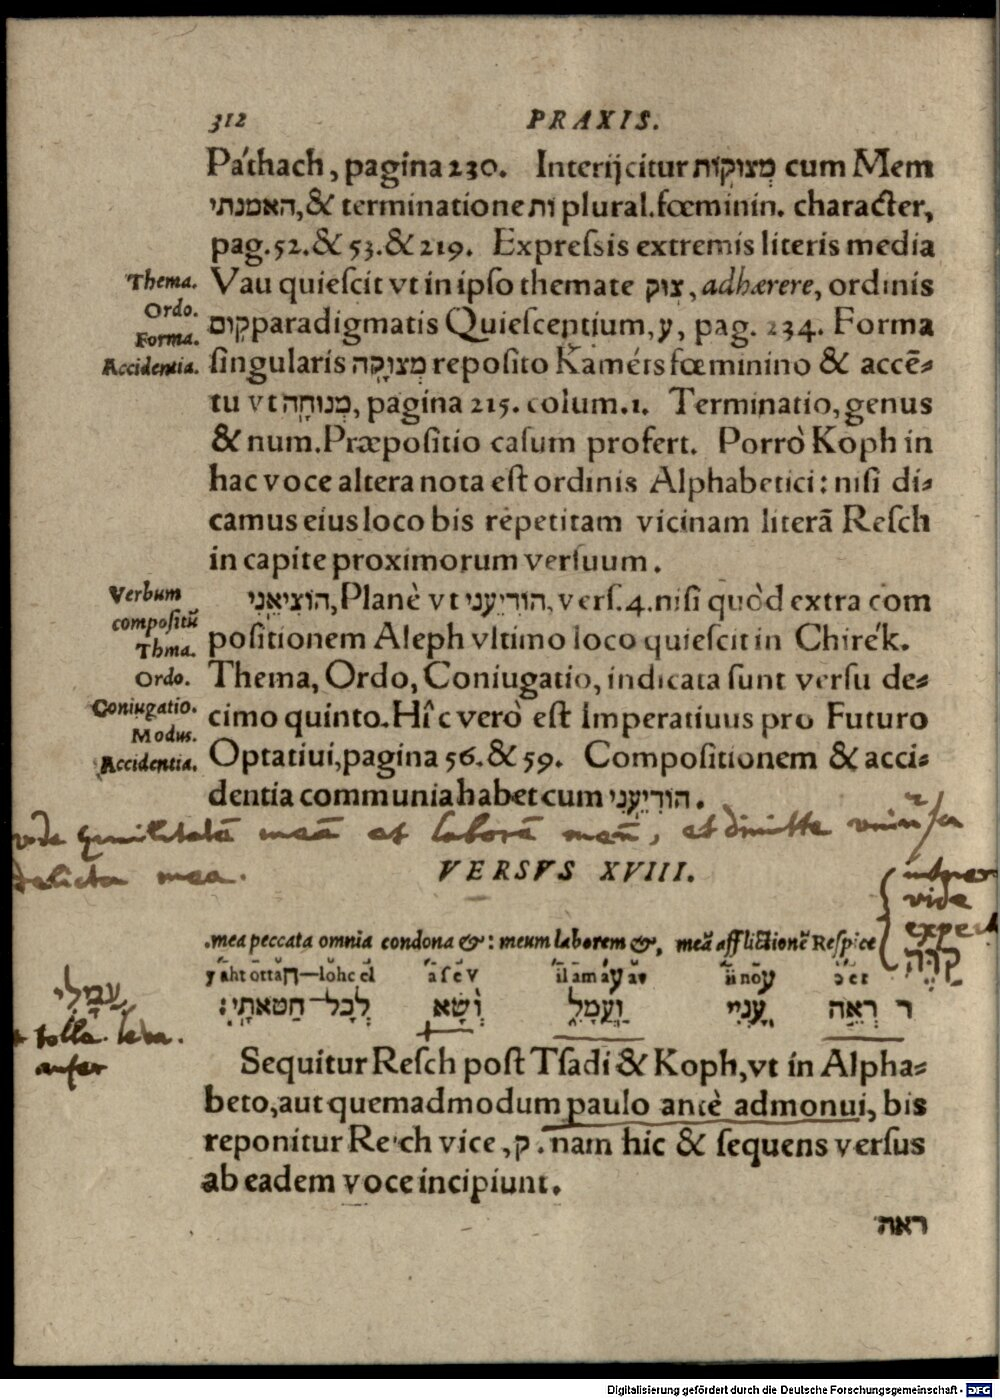 312 PRAXIS.
Páthach, pagina 230. Interijcitur מְצוּקוֹת cum Mem
האמנתי, & terminatione וֹת plural. fœminin. character,
pag. 52. & 53. & 219. Expreſsis extremis literis media
Thema. Vau quieſcit vt in ipſo themate צוּק, adhærere, ordinis
Ordo.
Forma. קוּם paradigmatis Quieſcentium, ץ, pag. 234. Forma
Accidentia. ſingularis מְצוּקָה repoſito Kaméts fœminino & accē-
tu vt מְנוּחָה, pagina 215. colum. 1. Terminatio, genus
& num. Præpoſitio caſum profert. Porrò Koph in
hac voce altera nota eſt ordinis Alphabetici: niſi di-
camus eius loco bis repetitam vicinam literā Reſch
in capite proximorum verſuum.
Verbum הוֹצִיאֵנִי, Planè vt הוֹדִיעֵנִי, verſ. 4. niſi quòd extra com
compoſitū
Thma. poſitionem Aleph vltimo loco quieſcit in Chirék.
Ordo. Thema, Ordo, Coniugatio, indicata ſunt verſu de-
Coniugatio. cimo quinto. Hîc verò eſt Imperatiuus pro Futuro
Modus.
Accidentia. Optatiui, pagina 56. & 59. Compoſitionem & acci-
dentia communia habet cum הוֹדִיעֵנִי.
meā et laborē meū, et dimitte
delicta mea.
VERSVS XVIII.
vide
.mea peccata omnia condona &: meum laborem &, meā afflictionē Reſpice
ר רְאֵה עָנְיִי וַעֲמָלִי וְשָׂא לְכָל־חַטֹּאתָי׃
עֲמָלִי
tolle. leva.
aufer
Sequitur Reſch poſt Tſadi & Koph, vt in Alpha-
beto, aut quemadmodum paulo antè admonui, bis
reponitur Reſch vice, ק. nam hic & ſequens verſus
ab eadem voce incipiunt.
ראה
Digitalisierung gefördert durch die Deutsche Forschungsgemeinschaft - DFG